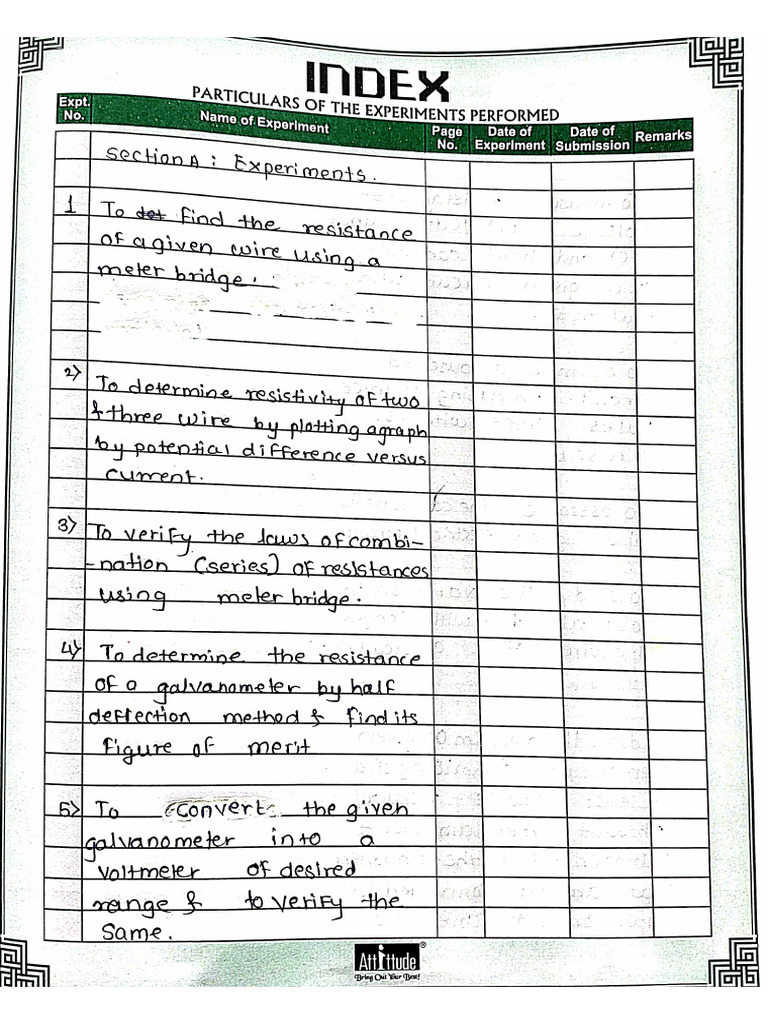 INDEX
PARTICULARS OF THE EXPERIMENTS PERFORMED
Expt. No. Name of Experiment Page No. Date of Experiment Date of Submission Remarks
Section A : Experiments.
1 To find the resistance
of a given wire using a
meter bridge.
2) To determine resistivity of two
& three wire by plotting a graph
by potential difference versus
current.
3) To verify the laws of combi-
-nation (series) of resistances
using meter bridge.
4) To determine the resistance
of a galvanometer by half
deflection method & find its
figure of merit
5) To convert the given
galvanometer into a
voltmeter of desired
range & to verify the
same.
Attitude
Bring Out Your Best!